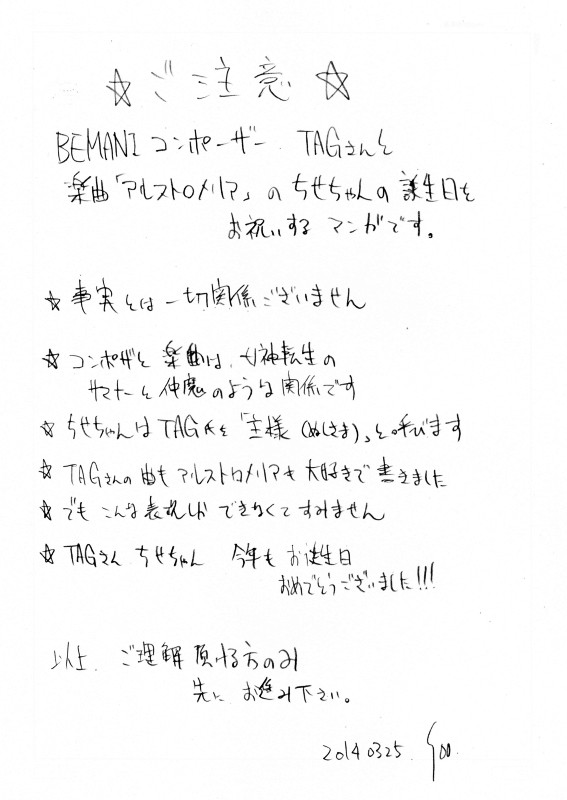 ☆ ご注意 ☆
BEMANI コンポーザー TAGさんと
楽曲「アルストロメリア」のちせちゃんの誕生日を
お祝いする マンガです。
☆ 事実とは一切関係ございません
☆ コンポザと楽曲は、女神転生の
サマナーと仲魔のような関係です
☆ ちせちゃんはTAG氏を「主様（ぬしさま）」と呼びます
☆ TAGさんの曲もアルストロメリアも大好きで書きました
☆ でもこんな表現しかできなくてすみません
☆ TAGさん ちせちゃん 今年もお誕生日
おめでとうございました!!!
以上、ご理解頂ける方のみ
先に お進み下さい。
20140325.